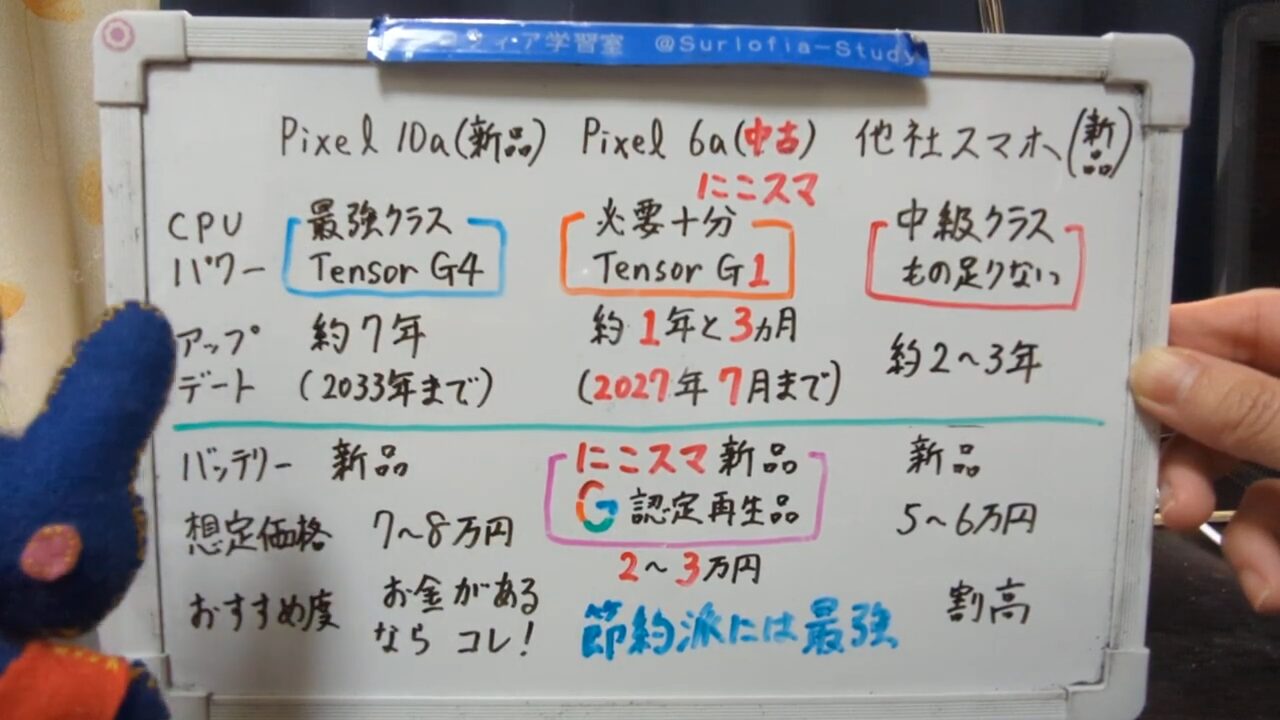 ィア学習室 @Surlofia-Study
Pixel 10a(新品) Pixel 6a(中古) 他社スマホ(新品)
にこスマ
CPUパワー 最強クラス 必要十分 中級クラス
Tensor G4 Tensor G1 もの足りない
アップデート 約7年 約1年と3ヵ月 約2〜3年
(2033年まで) (2027年7月まで)
バッテリー 新品 にこスマ新品 新品
G認定再生品
想定価格 7〜8万円 2〜3万円 5〜6万円
おすすめ度 お金がある 節約派には最強 割高
ならコレ!